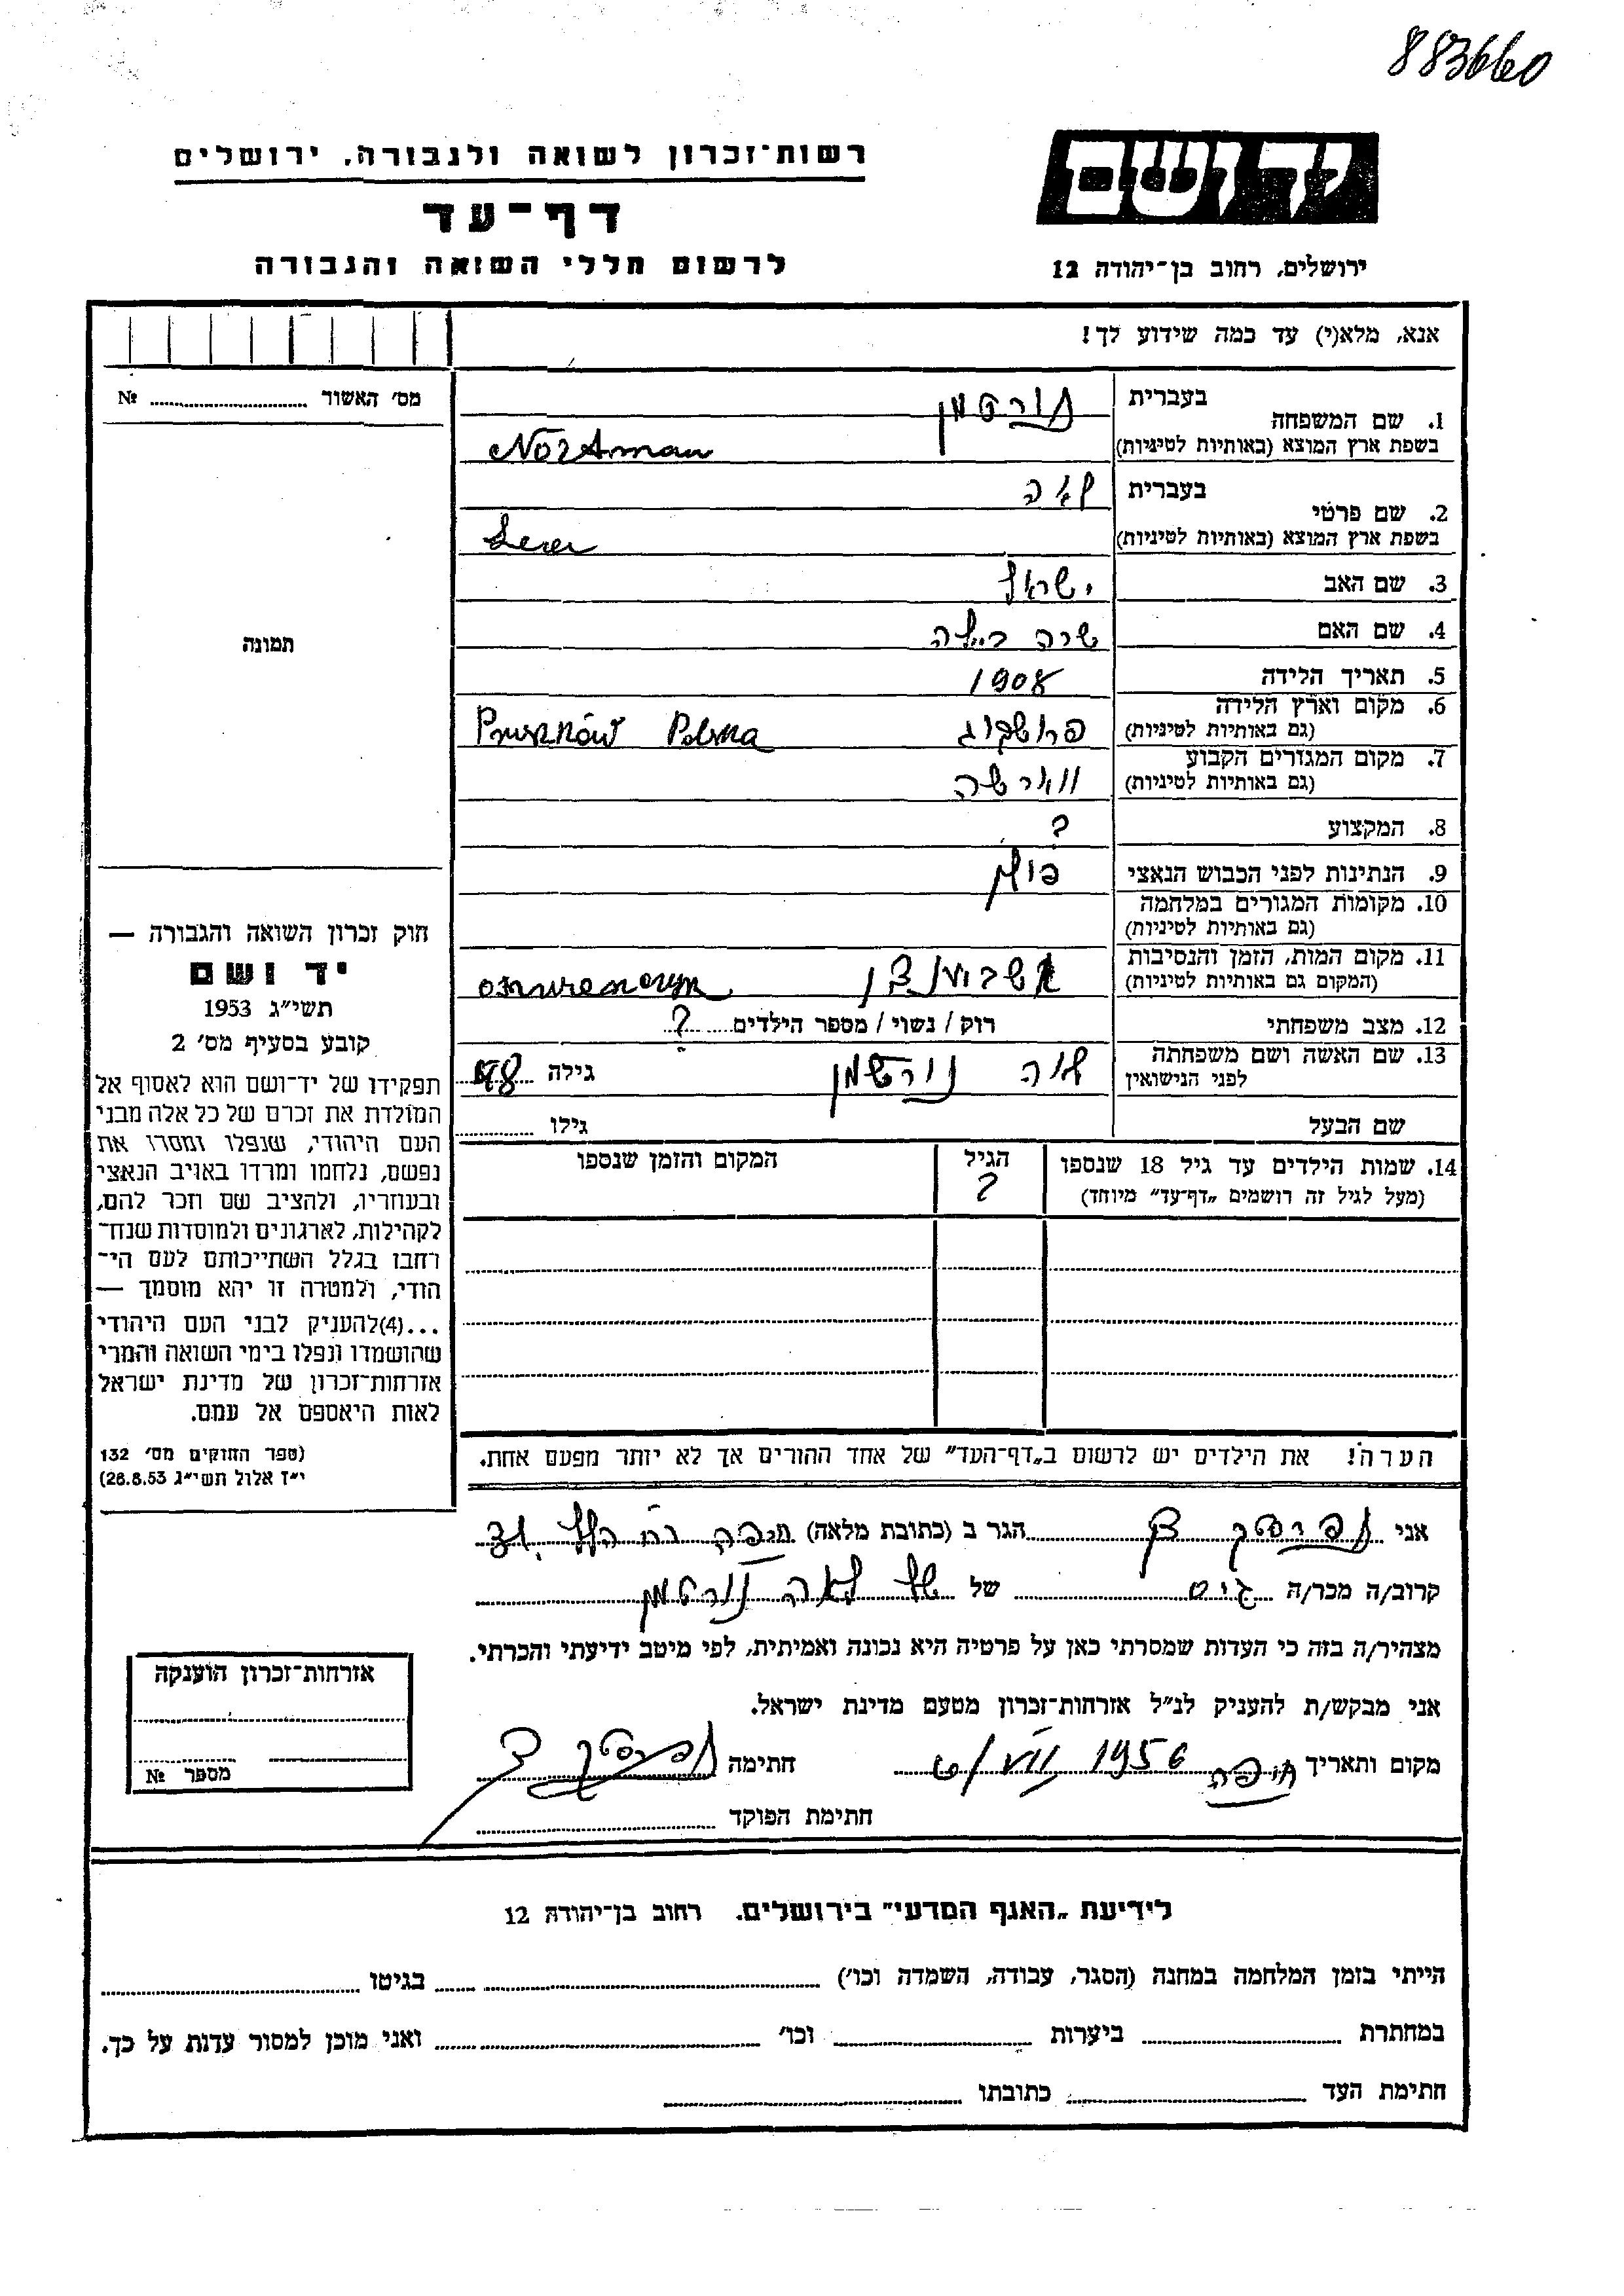 883660
רשות־זכרון לשואה ולגבורה, ירושלים
יד ושם
דף־עד
לרשום חללי השואה והגבורה
ירושלים, רחוב בן־יהודה 12
אנא, מלא(י) עד כמה שידוע לך!
מס׳ האשור № 
תמונה
חוק זכרון השואה והגבורה —
יד ושם
תשי״ג 1953
קובע בסעיף מס׳ 2
תפקידו של יד־ושם הוא לאסוף אל
המולדת את זכרם של כל אלה מבני
העם היהודי, שנפלו ומסרו את
נפשם, נלחמו ומרדו באויב הנאצי
ובעוזריו, ולהציב שם וזכר להם,
לקהילות, לארגונים ולמוסדות שנח־
רחבו בגלל השתייכותם לעם הי־
הודי, ולמטרה זו יהא מוסמך —
...(4)להעניק לבני העם היהודי
שהושמדו ונפלו בימי השואה והמרי
אזרחות־זכרון של מדינת ישראל
לאות היאספם אל עמם.
(ספר החוקים מס׳ 132
י״ז אלול תשי״ג 28.8.53)
1. שם המשפחה בעברית נורטמן
בשפת ארץ המוצא (באותיות לטיניות) Nortman
2. שם פרטי בעברית לאה
בשפת ארץ המוצא (באותיות לטיניות) Lea
3. שם האב ישראל
4. שם האם שרה ביילה
5. תאריך הלידה 1908
6. מקום וארץ הלידה
(גם באותיות לטיניות) פרושקוב Pruszków Polska
7. מקום המגורים הקבוע
(גם באותיות לטיניות) ווארשה
8. המקצוע ?
9. הנתינות לפני הכבוש הנאצי פולין
10. מקומות המגורים במלחמה
(גם באותיות לטיניות)
11. מקום המות, הזמן והנסיבות
(המקום גם באותיות לטיניות)
12. מצב משפחתי רוק / נשוי / מספר הילדים ?
13. שם האשה ושם משפחתה
לפני הנישואין לאה נורטמן גילה 48
שם הבעל גילו
14. שמות הילדים עד גיל 18 שנספו הגיל המקום והזמן שנספו
(מעל לגיל זה רושמים „דף־עד״ מיוחד) ?
הערה! את הילדים יש לרשום ב„דף־העד״ של אחד ההורים אך לא יותר מפעם אחת.
אני הגר ב (כתובת מלאה) חיפה
קרוב/ה מכר/ה גיס של של לאה נורטמן
מצהיר/ה בזה כי העדות שמסרתי כאן על פרטיה היא נכונה ואמיתית, לפי מיטב ידיעתי והכרתי.
אני מבקש/ת להעניק לנ״ל אזרחות־זכרון מטעם מדינת ישראל.
מקום ותאריך חיפה 1956 חתימה
חתימת הפוקד
אזרחות־זכרון הוענקה
מספר №
לידיעת „האגף המדעי״ בירושלים. רחוב בן־יהודה 12
הייתי בזמן המלחמה במחנה (הסגר, עבודה, השמדה וכו׳) בגיטו
במחתרת ביערות וכו׳ ואני מוכן למסור עדות על כך.
חתימת העד כתובתו